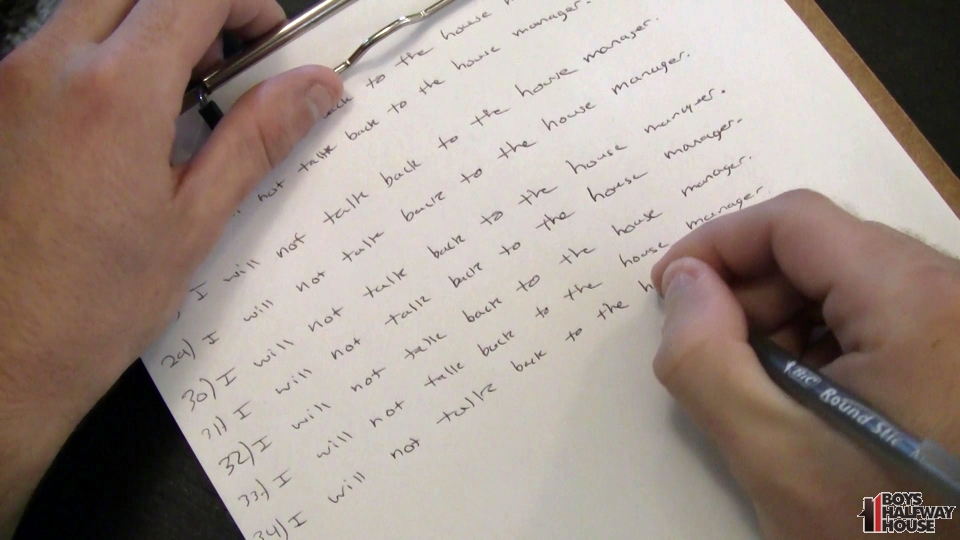 to the house
not talk back to the house manager.
I will not talk back to the house manager.
29) I will not talk back to the house manager.
30) I will not talk back to the house manager.
31) I will not talk back to the house manager.
32) I will not talk back to the house manager.
33) I will not talk back to the house manager.
34) I will not talk back to the h
BIC Round Stic
BOYS
HALFWAY
HOUSE